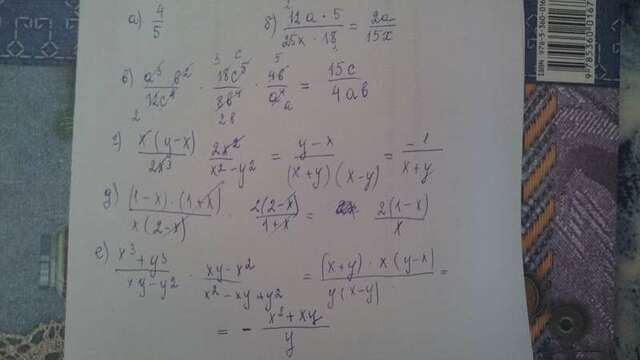 а) 4/5 б) 12a · 5 / 25x · 18 = 2a / 15x
в) a³ b² / 12c⁴ · 18c⁵ / 8b⁴ · 4b / a⁴ = 15c / 4ab
г) x(y-x) / 2x³ 2x² / x²-y² = y-x / (x+y)(x-y) = -1 / x+y
д) (1-x)·(1+x) / x(2-x) · 2(2-x) / 1+x = 2(1-x) / x
е) x³+y³ / xy-y² · xy-x² / x²-xy+y² = (x+y)·x(y-x) / y(x-y) =
= - x²+xy / y